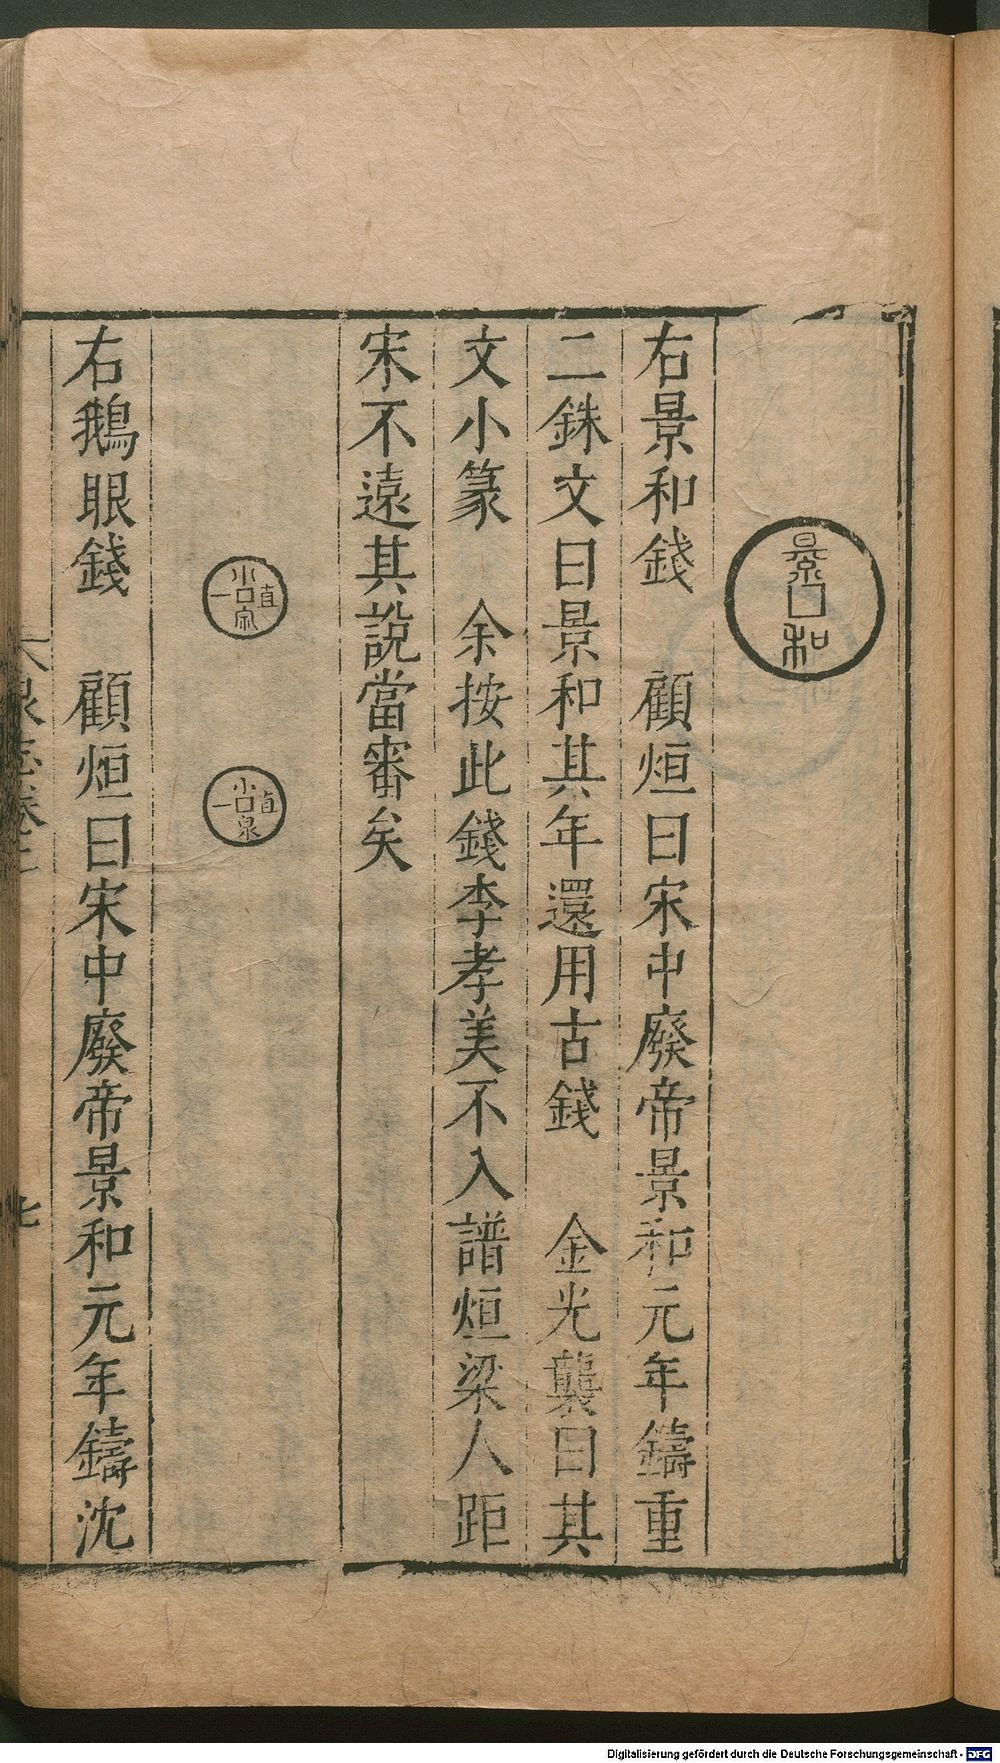 景和
右景和錢　顧烜曰宋中廢帝景和元年鑄重
二銖文曰景和其年還用古錢　金光襲曰其
文小篆　余按此錢李孝美不入譜烜梁人距
宋不遠其說當審矣
小 直 一
小 直 泉 一
右鵝眼錢　顧烜曰宋中廢帝景和元年鑄沈
泉志卷
七
Digitalisierung gefördert durch die Deutsche Forschungsgemeinschaft - DFG